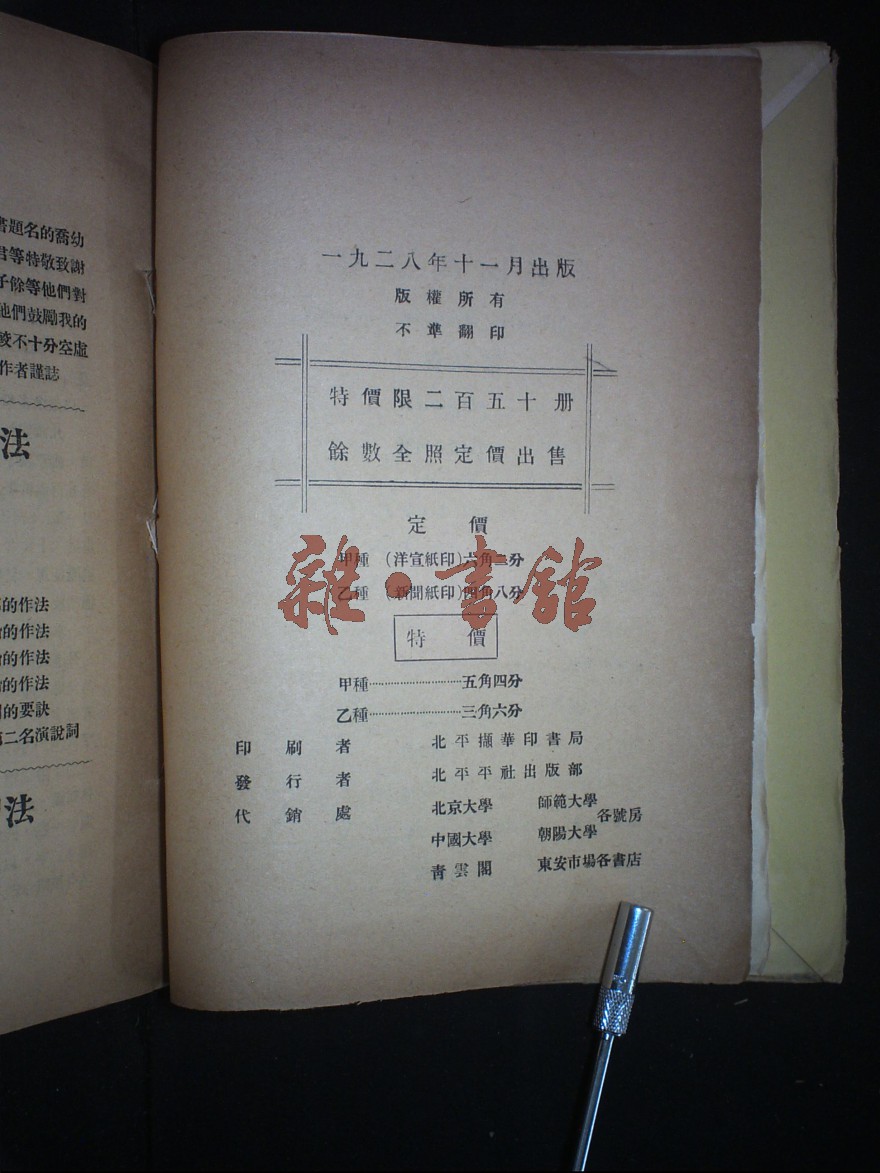 書題名的喬幼
君等特敬致謝
子餘等他們對
他們鼓勵我的
不十分空虛
作者謹誌
法
的作法
的作法
的作法
的作法
的要訣
第二名演說詞
法
一九二八年十一月出版
版權所有
不準翻印
特價限二百五十册
餘數全照定價出售
定價
甲種 (洋宣紙印)六角二分
乙種 (新聞紙印)四角八分
雜·書館
特價
甲種……………………五角四分
乙種……………………三角六分
印刷者 北平擷華印書局
發行者 北平平社出版部
代銷處 北京大學 師範大學 各號房
中國大學 朝陽大學
青雲閣 東安市場各書店